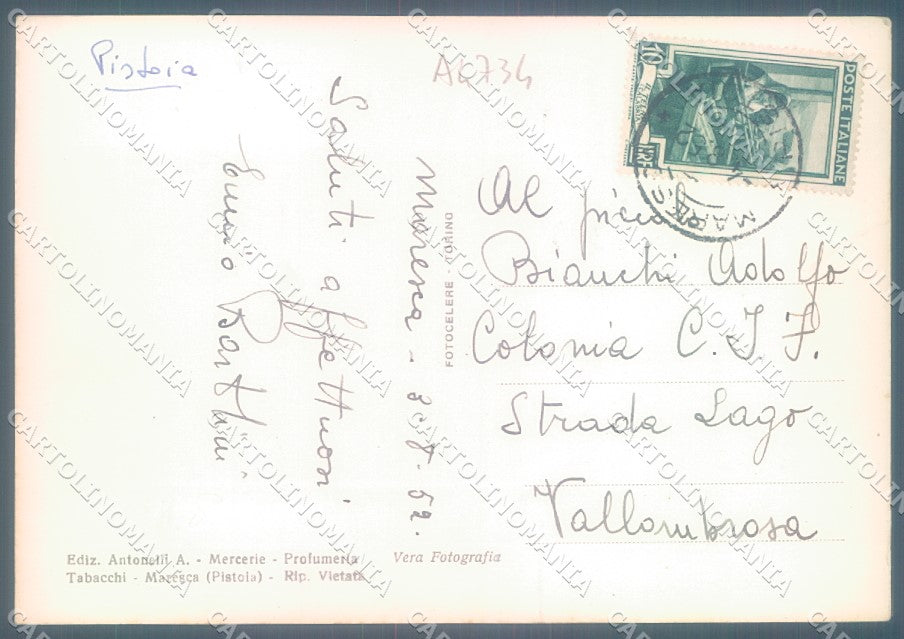 Pistoia
A6734
Maresca - 3.8.52.
Saluti affettuosi
Bartolini
FOTOCELERE - TORINO
10
POSTE ITALIANE
LIRE
MARES
Al
Bianchi Adolfo
Colonia C.I.F.
Strada Lago
Vallombrosa
Ediz. Antonelli A. - Mercerie - Profumeria
Tabacchi - Maresca (Pistoia) - Rip. Vietata
Vera Fotografia
CARTOLINOMANIA